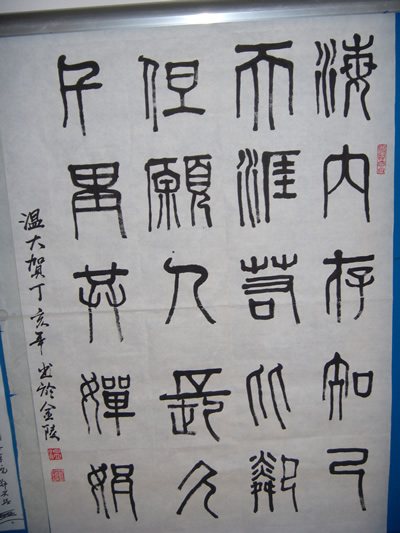 海内存知己
天涯若比鄰
但願人長久
千里共嬋娟
温大賀丁亥年书於金陵